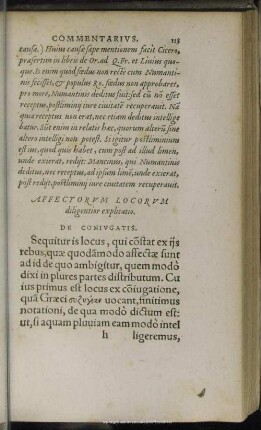 COMMENTARIVS. 113
causa.) Huius causæ sæpe mentionem facit Cicero,
præsertim in libris de Or. ad Q. Fr. et Liuius quo-
que. Is enim quod fœdus non recte cum Numanti-
nis fecisset, & populus Ro. fœdus non approbaret,
pro more, Numantinis deditus fuit: sed cū nō esset
receptus, postliminij iure ciuitatē recuperauit. Nā
qua receptus non erat, nec etiam deditus intellige
batur. Sūt enim in relatis hæc, quorum alterū sine
altero intelligi non potest. Si igitur postliminium
est ius, quod quis habet, cum post ad illud limen,
unde exierat, redijt: Mancinus, qui Numantinis
deditus, nec receptus, ad ipsum limē, unde exierat,
post redijt, postliminij iure ciuitatem recuperauit.
AFFECTORVM LOCORVM
diligentior explicatio.
DE CONIVGATIS.
Sequitur is locus, qui cōstat ex ijs
rebus, quæ quodāmodo affectæ sunt
ad id de quo ambigitur, quem modò
dixi in plures partes distributum. Cu
ius primus est locus ex cōiugatione,
quā Græci συζυγίαν uocant, finitimus
notationi, de qua modò dictum est:
ut, si aquam pluuiam eam modò intel
h ligeremus,